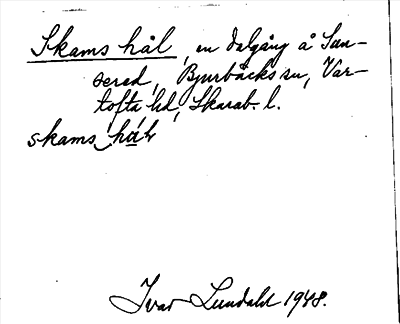 Skams hål, en dalgång å Sun-
sered, Bjurbäcks sn, Var-
tofta hd, Skarab. l.
skams hål
Ivar Lundahl 1948.